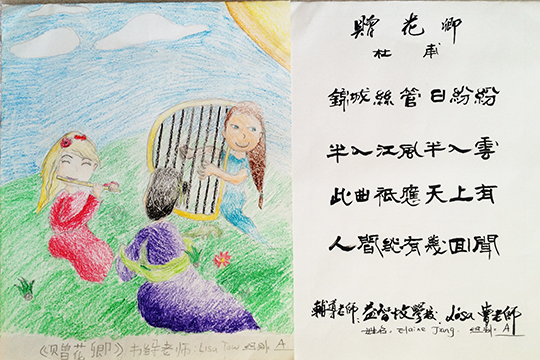 《赠花卿》 老师: Lisa Tow 组别: A
贈花卿
杜甫
錦城絲管日紛紛
半入江風半入雲
此曲祗應天上有
人間能有幾回聞
輔導老師: 益智 學校 Lisa 老師
姓名: Elaine Jang. 组别. A